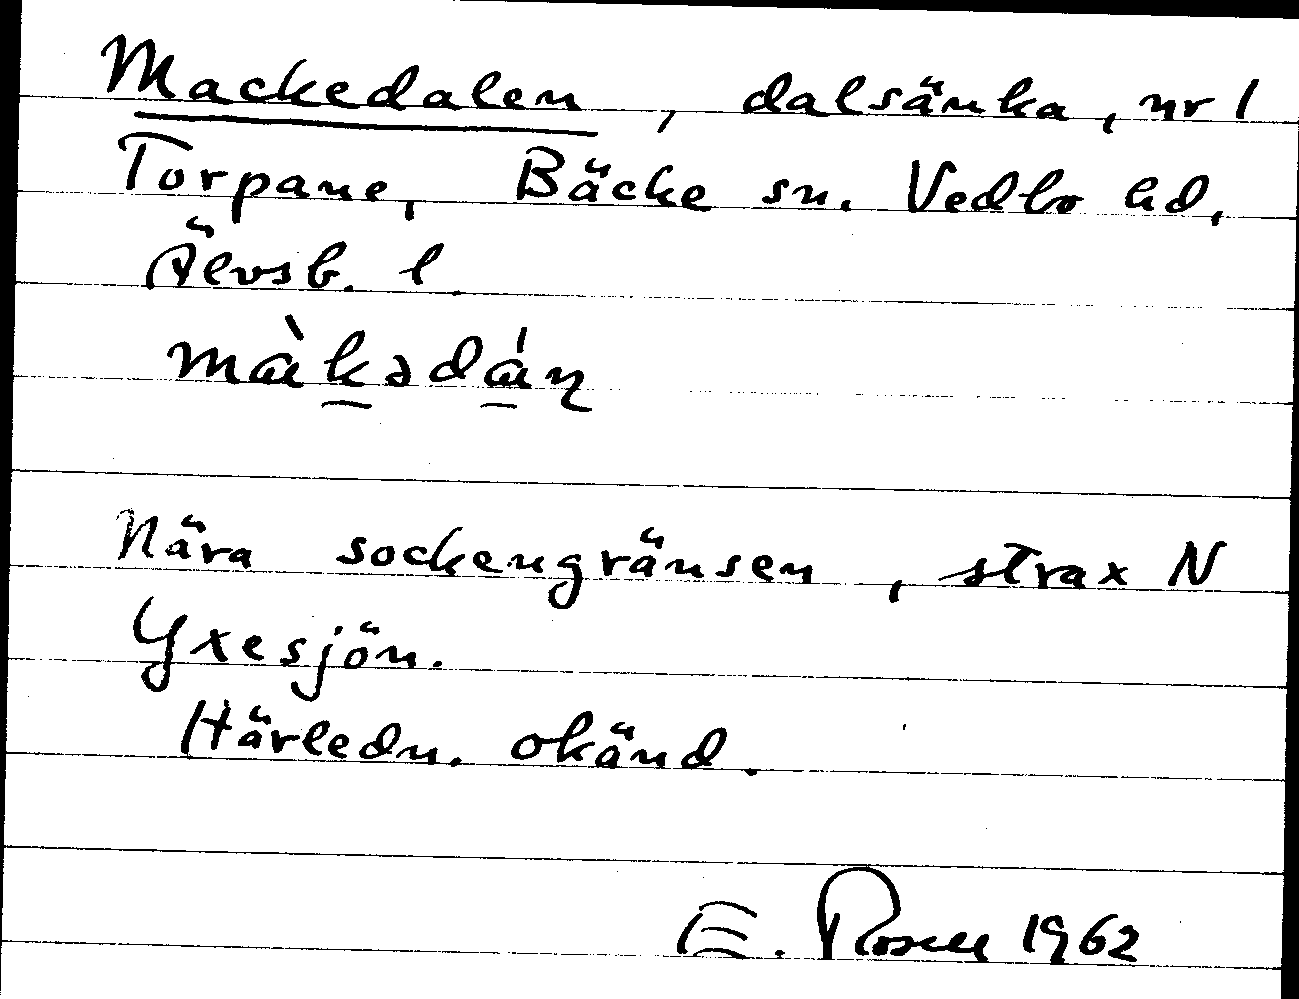 Mackedalen, dalsänka, nr 1
Torpane, Bäcke sn. Vedbo hd,
Älvsb. l.
màk̲ədá̲ṇ
Nära sockengränsen, strax N
Yxesjön.
Härledn. okänd.
E. Rosell 1962